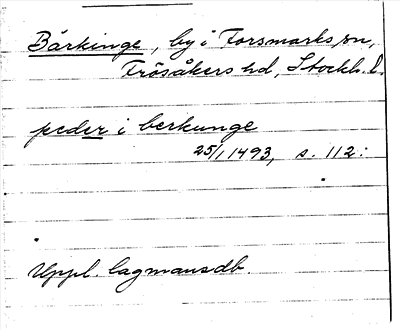 Bärkinge, by i Forsmarks sn,
Frösåkers hd, Stockh. l.
peder i berkunge
25/1 1493, s. 112:
Uppl. lagmansdb.